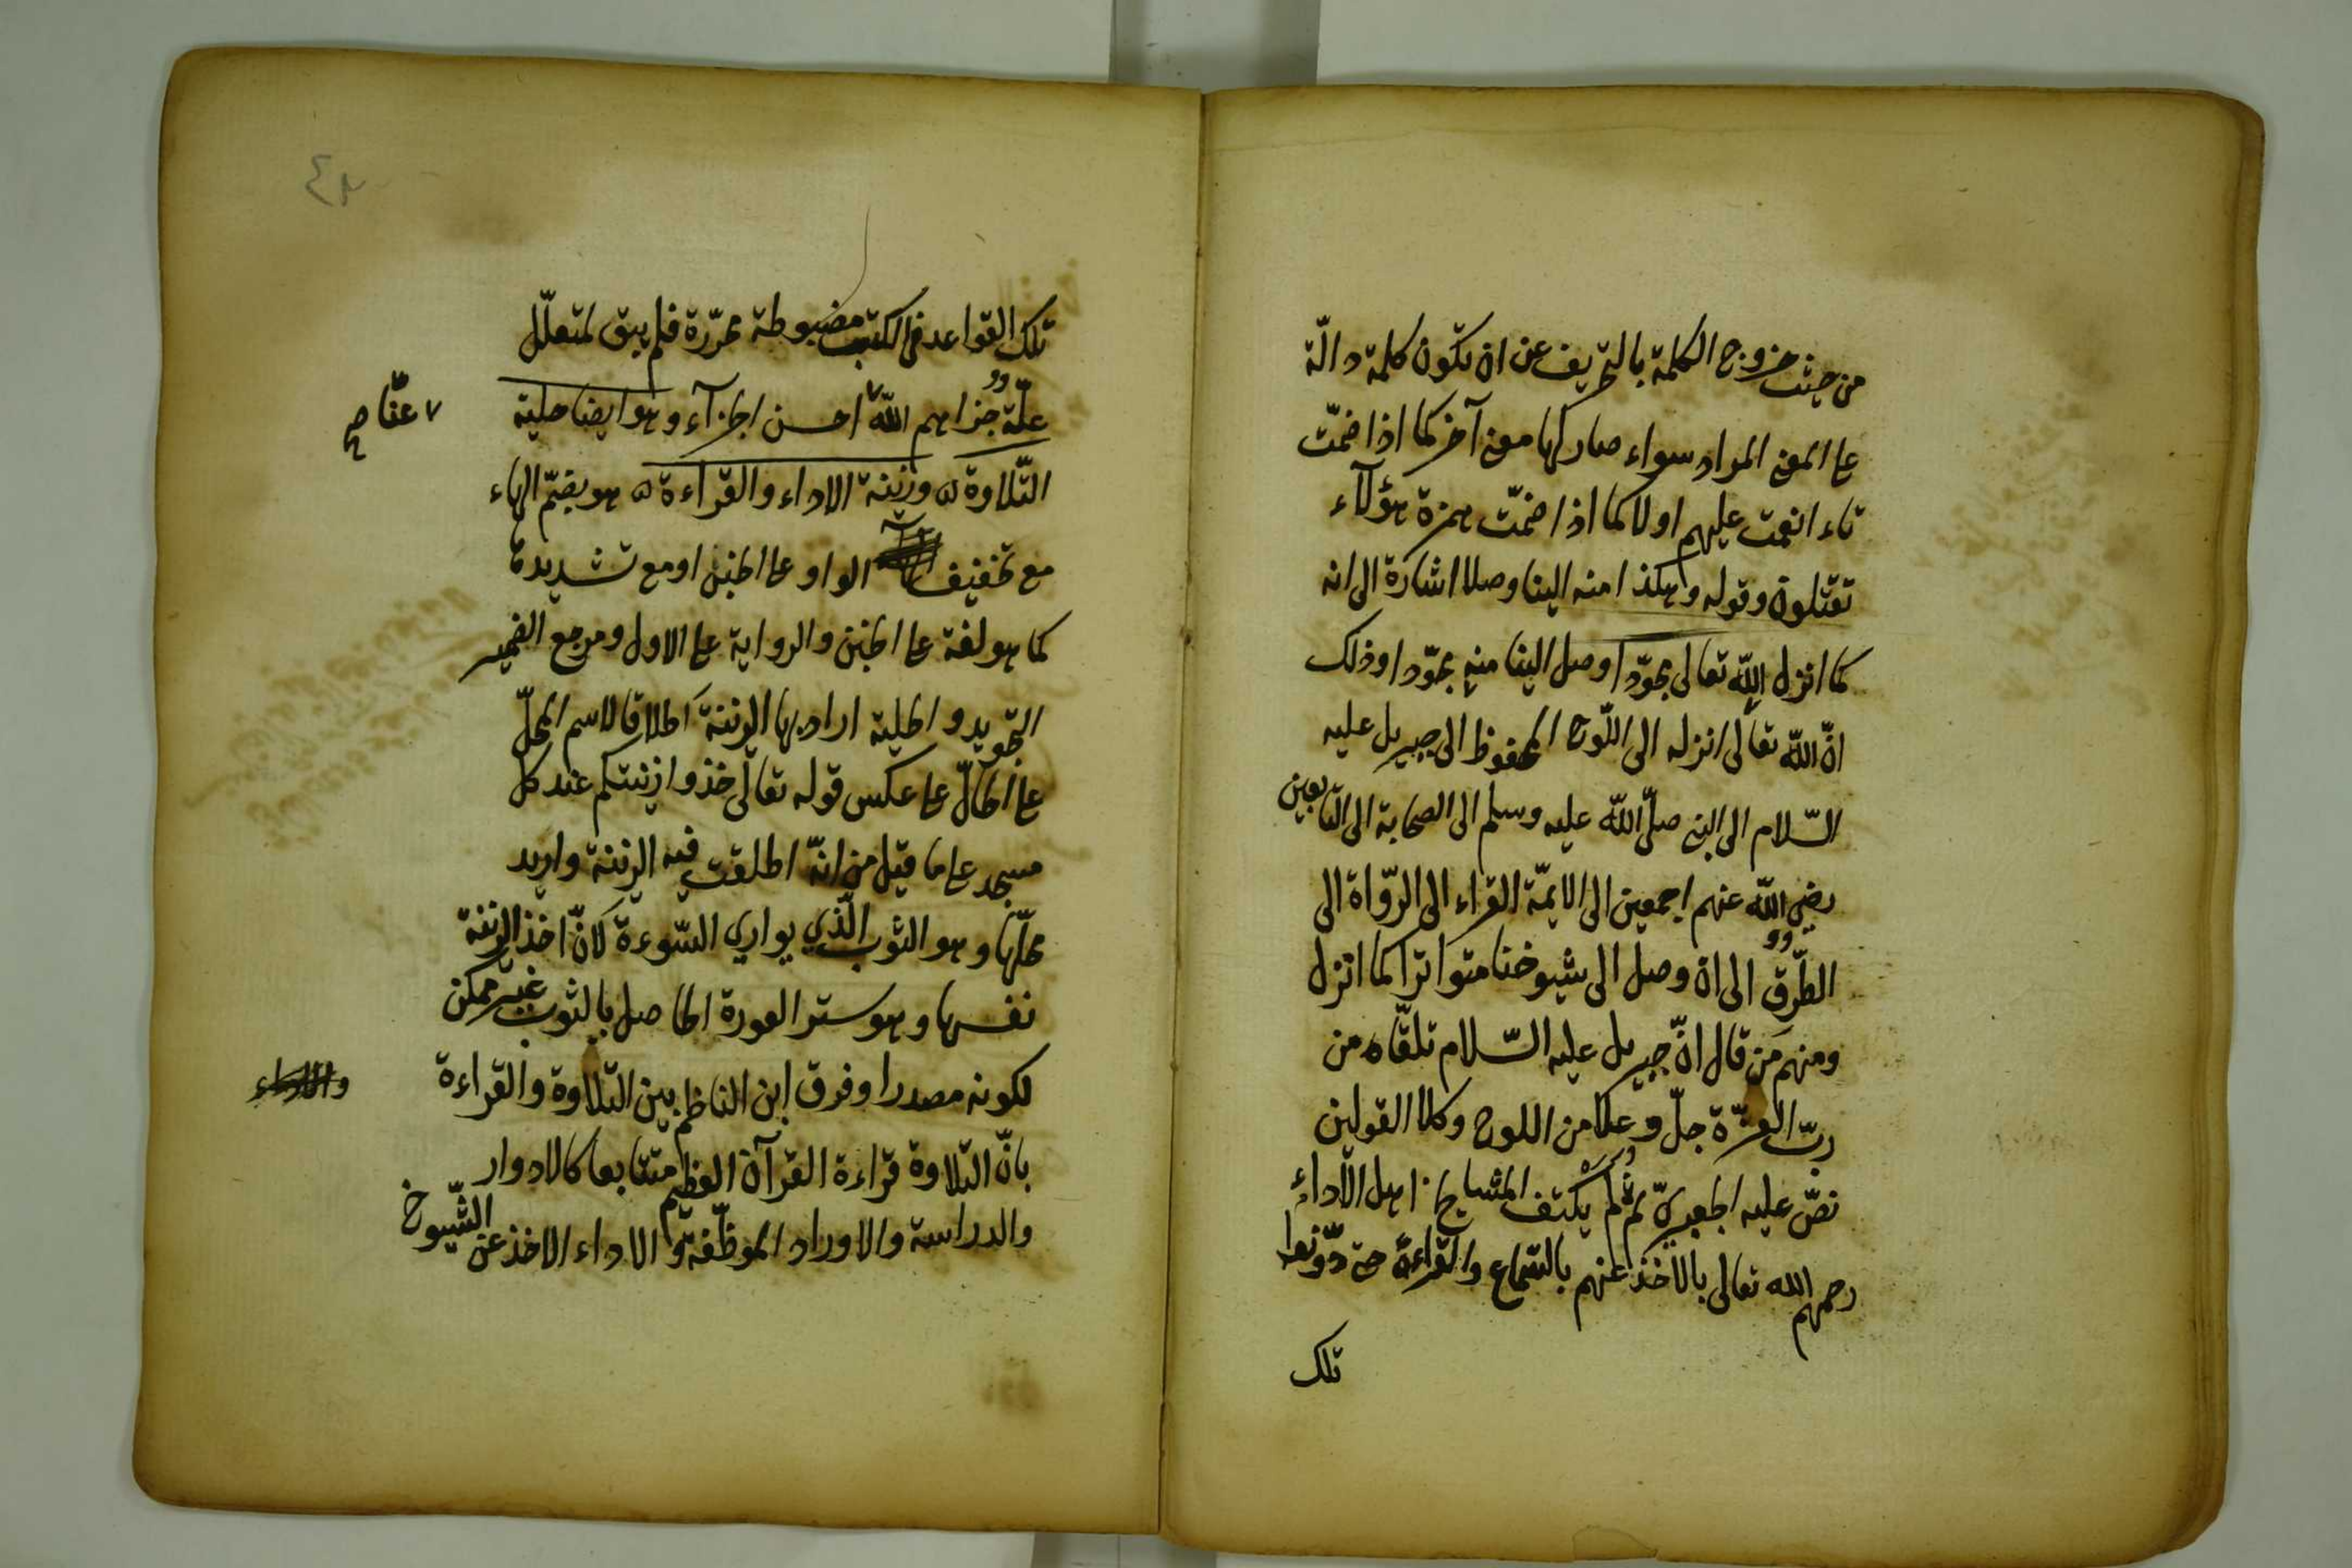 من حيث خروج الكلمة بالتحريف عن ان تكون كلمة دالّة
على المعنى المراد سواء صار لها معنى آخر كما اذا ضمّت
تاء انعمت عليهم او لا كما اذا ضمّت همزة هؤلآء
تقتلون وقوله وهكذا منه الينا وصلا اشارة الى انه
كما انزل الله تعالى مجوّدا وصل الينا منه مجوّدا وذلك
انّ الله تعالى انزله الى اللّوح المحفوظ الى جبريل عليه
السّلام الى النبى صلّى الله عليه وسلم الى الصحابة الى التّابعين
رضى الله عنهم اجمعين الى الايمّة القراء الى الرّواة الى
الطّرق الى ان وصل الى شيوخنا متواترا كما انزل
ومنهم من قال انّ جبريل عليه السّلام تلقّاه من
ربّ العزّة جلّ وعلا من اللوح وكلا القولين
نصّ عليه الجعبرىّ ثم لم يكتف المشايخ من اهل الاداء
رحمهم الله تعالى بالاخذ عنهم بالسّماع والقراءة حتى دوّنوا
تلك
تلك القواعد فى الكتب مضبوطة محرّرة فلم يبق لمتعلّل
علّة جزاهم الله احسن الجزآء وهو ايضا حلية
عنّا صح
التّلاوة وزينة الاداء والقراءة هو بضمّ الهاء
مع تخفيف الواو على الجنى او مع تشديدة
كما هو لغة على الجنى والرواية على الاول ومرجع الضمير
التجويد والحلية اراد بها الزينة اطلاقا لاسم المحلّ
على الحالّ على عكس قوله تعالى خذوا زينتكم عند كل
مسجد على ما قيل من انّه اطلقت فيه الزينة واريد
محلّها وهو الثوب الّذي يواري السّوءة لانّ اخذ الزينة
نفسها وهو ستر العورة الحاصل بالثوب غير ممكن
لكونه مصدرا وفرق ابن الناظم بين التّلاوة والقراءة
والاداء
بانّ التلاوة قراءة القرآن العظيم متتابعا كالادوار
والدراسة والاوراد الموظّفة والاداء الاخذ عن الشّيوخ